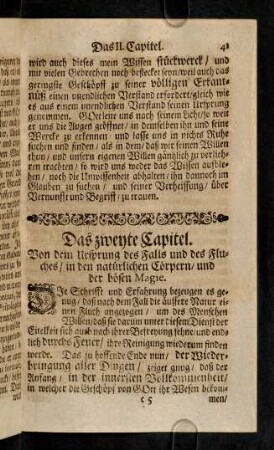 Das II. Capitel. 41
wird auch dieses mein Wissen stückwerck / und
mit vielen Gebrechen noch beflecket seyn / weil auch das
geringste Geschöpff zu seiner völligen Erkänt-
nüß einen unendlichen Verstand erfordert / gleich wie
es aus einem unendlichen Verstand seinen Ursprung
genommen. GOtt lencke uns nach seinem Lichte / so wie
er uns die Augen geöffnet / in demselben ihn und seine
Wercke zu erkennen / und lasse uns in nichts Ruhe
suchen und finden / als in dem / daß wir seinen Willen
thun / und unsern eigenen Willen gäntzlich zu verlieh-
ren trachten / so wird uns weder das Wissen aufblä-
hen / noch die Unwissenheit abhalten / ihn dannoch im
Glauben zu suchen / und seiner Verheissung / über
Vernunfft und Begriff / zu trauen.
Das zweyte Capitel.
Von dem Ursprung des Falls und des Flu-
ches / in den natürlichen Cörpern / und
der bösen Magie.
Die Schrifft und Erfahrung bezeugen es ge-
nug / daß nach dem Fall die äussere Natur einen
Fluch angezogen / um des Menschen
Willen / daß sie darum unter diesem Dienst der
Eitelkeit sich auch nach ihrer Befreyung sehne / und end-
lich durchs Feuer / ihre Reinigung wiederum finden
werde. Das zu hoffende Ende nun / der Wieder-
bringung aller Dingen / zeiget gnug / daß der
Anfang / in der innersten Vollkommenheit /
in welcher die Geschöpf von GOtt ihr Wesen bekom-
c 5 men /